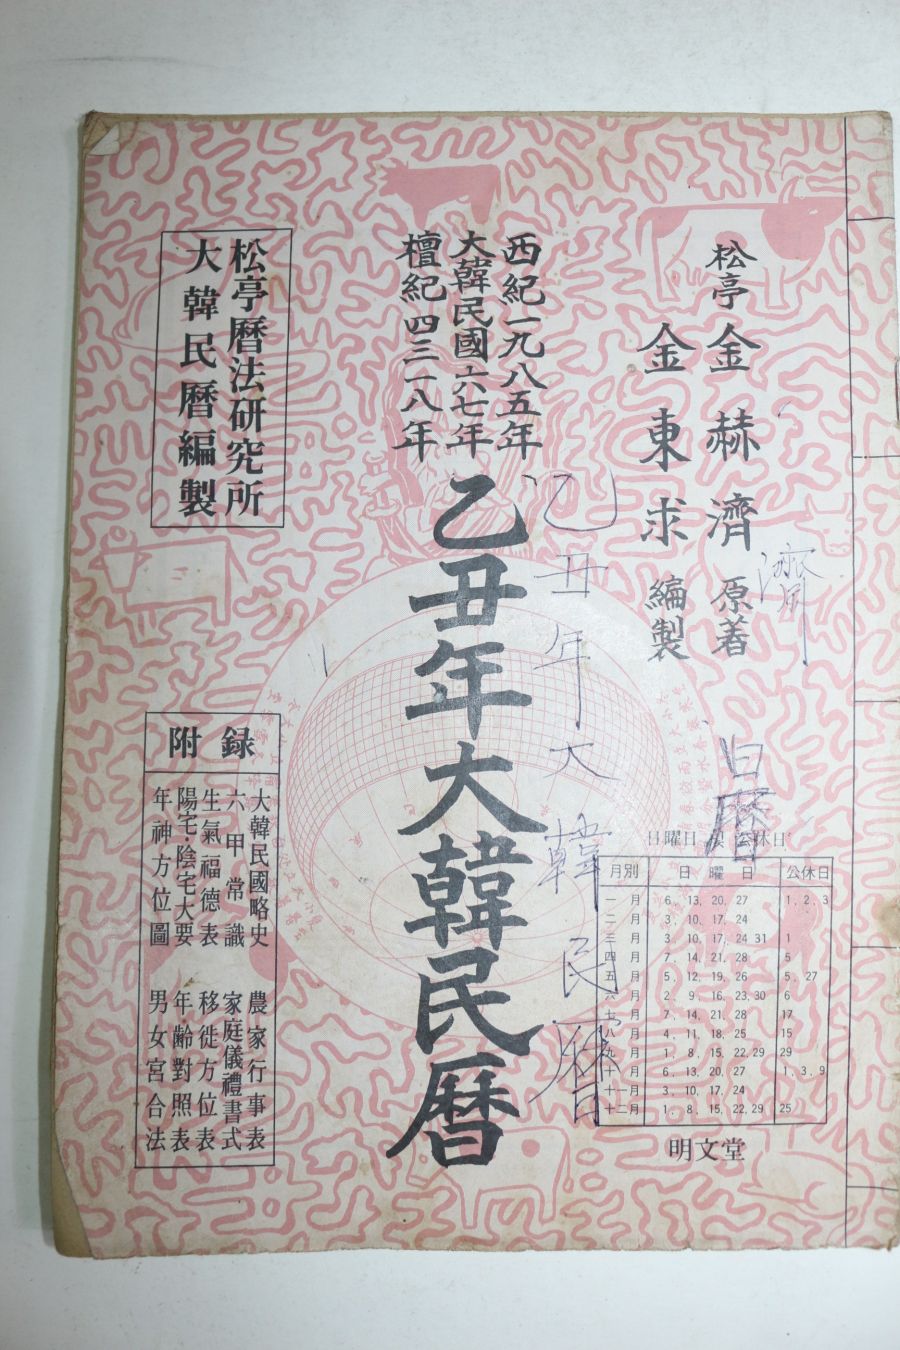 松亭 金赫濟 原著
金東求 編製
濟
西紀一九八五年
大韓民國六七年
檀紀四三一八年
乙丑年大韓民曆
乙丑年大韓民曆
松亭曆法研究所
大韓民曆編製
附錄
大韓民國略史 農家行事表
六甲常識 家庭儀禮書式
生氣福德表 移徙方位表
陽宅陰宅大要 年齡對照表
年神方位圖 男女宮合法
曆
日曜日 및 公休日
月別 日曜日 公休日
一月 6, 13, 20, 27 1, 2, 3
二月 3, 10, 17, 24
三月 3, 10, 17, 24 31 1
四月 7, 14, 21, 28 5
五月 5, 12, 19, 26 5, 27
六月 2, 9, 16, 23, 30 6
七月 7, 14, 21, 28 17
八月 4, 11, 18, 25 15
九月 1, 8, 15, 22, 29 29
十月 6, 13, 20, 27 1, 3, 9
十一月 3, 10, 17, 24
十二月 1, 8, 15, 22, 29 25
明文堂